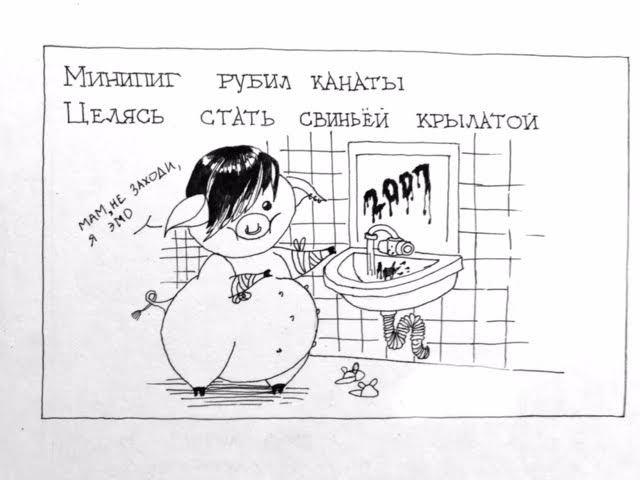 Минипиг рубил канаты
Целясь стать свиньёй крылатой
Мам, не заходи,
я эмо
2007